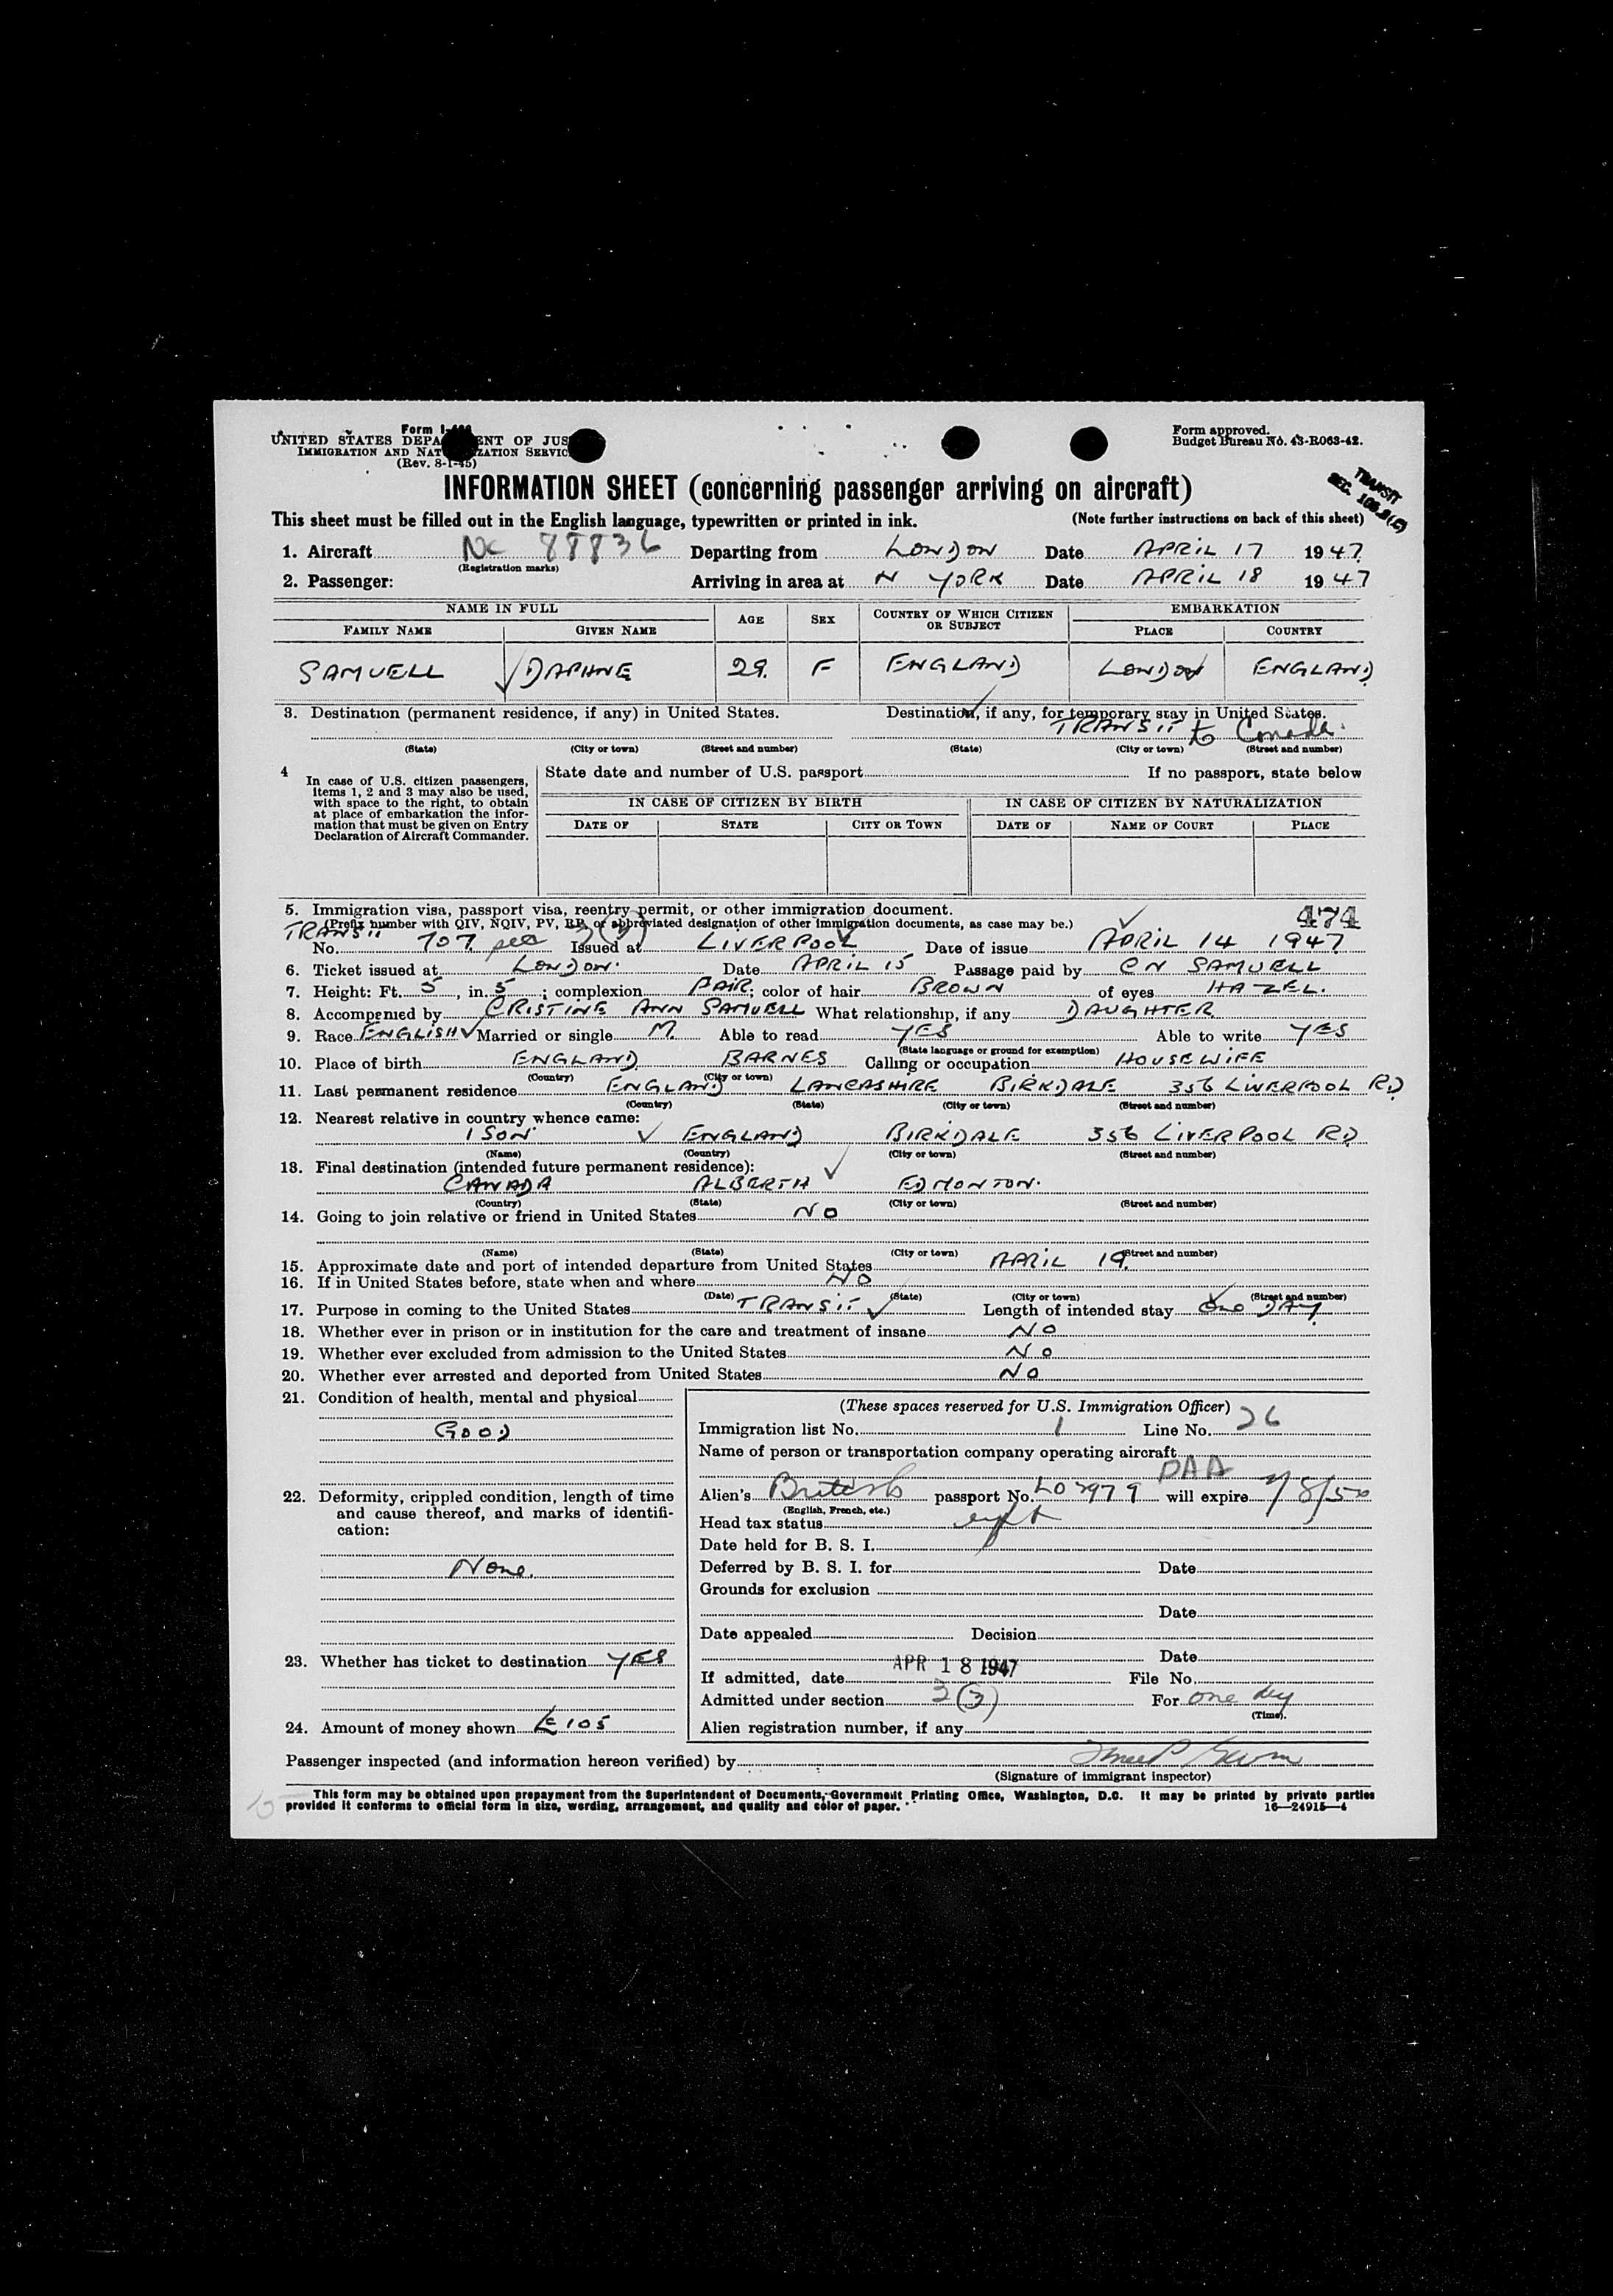 Form I-
UNITED STATES DEPA ENT OF JUS
IMMIGRATION AND NAT ZATION SERVIC
(Rev. 8-1-45)
Form approved.
Budget Bureau No. 43-R063-42.
INFORMATION SHEET (concerning passenger arriving on aircraft)
TRANSIT
SEC.
This sheet must be filled out in the English language, typewritten or printed in ink. (Note further instructions on back of this sheet)
1. Aircraft NC 88836 Departing from LONDON Date APRIL 17 1947
(Registration marks)
2. Passenger: Arriving in area at N YORK Date APRIL 18 1947
NAME IN FULL AGE SEX COUNTRY OF WHICH CITIZEN OR SUBJECT EMBARKATION
FAMILY NAME GIVEN NAME PLACE COUNTRY
SAMUELL DAPHNE 29. F ENGLAND LONDON ENGLAND
3. Destination (permanent residence, if any) in United States. Destination, if any, for temporary stay in United States.
TRANSIT to Canada.
(State) (City or town) (Street and number) (State) (City or town) (Street and number)
4 In case of U.S. citizen passengers, items 1, 2 and 3 may also be used, with space to the right, to obtain at place of embarkation the information that must be given on Entry Declaration of Aircraft Commander.
State date and number of U.S. passport If no passport, state below
IN CASE OF CITIZEN BY BIRTH IN CASE OF CITIZEN BY NATURALIZATION
DATE OF STATE CITY OR TOWN DATE OF NAME OF COURT PLACE
5. Immigration visa, passport visa, reentry permit, or other immigration document. 474
(Prefix number with QIV, NQIV, PV, RP, or abbreviated designation of other immigration documents, as case may be.)
TRANSIT
No. 707 Issued at LIVERPOOL Date of issue APRIL 14 1947
6. Ticket issued at LONDON. Date APRIL 15 Passage paid by CN SAMUELL
7. Height: Ft. 5, in. 5; complexion FAIR; color of hair BROWN of eyes HAZEL.
8. Accompanied by CRISTINE ANN SAMUELL What relationship, if any DAUGHTER
9. Race ENGLISH Married or single M. Able to read YES Able to write YES
(State language or ground for exemption)
10. Place of birth ENGLAND BARNES Calling or occupation HOUSEWIFE
(Country) (City or town)
11. Last permanent residence ENGLAND LANCASHIRE BIRKDALE 356 LIVERPOOL RD
(Country) (State) (City or town) (Street and number)
12. Nearest relative in country whence came:
1 SON. ENGLAND BIRKDALE 356 LIVERPOOL RD
(Name) (Country) (City or town) (Street and number)
13. Final destination (intended future permanent residence):
CANADA ALBERTA EDMONTON.
(Country) (State) (City or town) (Street and number)
14. Going to join relative or friend in United States NO
(Name) (State) (City or town) (Street and number)
15. Approximate date and port of intended departure from United States APRIL 19.
16. If in United States before, state when and where NO
(Date) (State) (City or town) (Street and number)
17. Purpose in coming to the United States TRANSIT Length of intended stay One DAY
18. Whether ever in prison or in institution for the care and treatment of insane NO
19. Whether ever excluded from admission to the United States NO
20. Whether ever arrested and deported from United States NO
21. Condition of health, mental and physical
GOOD
22. Deformity, crippled condition, length of time and cause thereof, and marks of identification:
None.
23. Whether has ticket to destination YES
24. Amount of money shown £105
(These spaces reserved for U.S. Immigration Officer)
Immigration list No. 1 Line No. 26
Name of person or transportation company operating aircraft
PAA
Alien's British passport No. will expire
(English, French, etc.)
Head tax status
Date held for B. S. I.
Deferred by B. S. I. for Date
Grounds for exclusion
Date
Date appealed Decision
Date
If admitted, date APR 18 1947 File No.
Admitted under section 3(3) For one day
(Time).
Alien registration number, if any
Passenger inspected (and information hereon verified) by
(Signature of immigrant inspector)
This form may be obtained upon prepayment from the Superintendent of Documents, Government Printing Office, Washington, D.C. It may be printed by private parties
provided it conforms to official form in size, wording, arrangement, and quality and color of paper. 16—24915—4